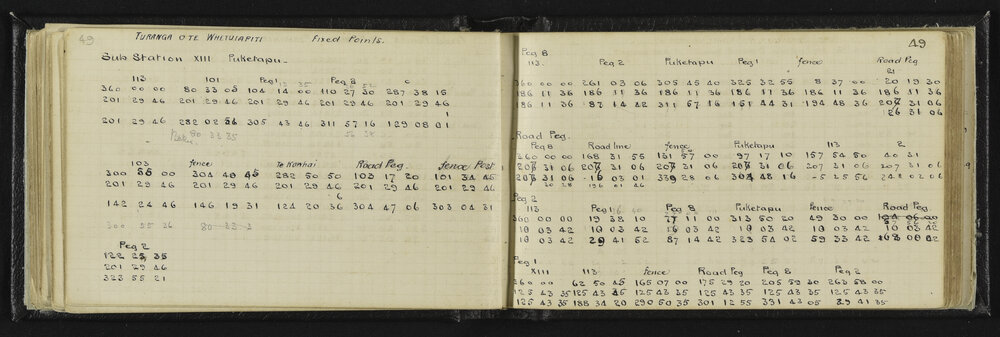 49
TURANGA O TE WHETUIAPITI Fixed Points.
Sub Station XIII Puketapu
113 101 Peg 1 Peg 2 C
360 00 00 80 33 05 104 14 00 110 27 30 287 38 15
201 29 46 201 29 46 201 29 46 201 29 46 201 29 46
1
201 29 46 282 02 56 305 43 46 311 57 16 129 08 01
80 33 35
103 fence Te Kanhai Road Peg. fence Post
300 55 00 304 49 45 282 50 50 103 17 20 101 34 45
201 29 46 201 29 46 201 29 46 201 29 46 201 29 46
6
142 24 46 146 19 31 124 20 36 304 47 06 303 04 31
300 55 36 80 33
Peg 2
122 25 35
201 29 46
323 55 21
49
Peg 8
113. Peg 2 Puketapu Peg 1 fence Road Peg
21
360 00 00 261 03 06 305 45 40 325 32 55 8 37 00 20 19 30
186 11 36 186 11 36 186 11 36 186 11 36 186 11 36 186 11 36
186 11 36 87 14 42 311 57 16 151 44 31 194 48 36 207 31 06
126 31 06
Road Peg.
Peg 8 Road line fence Puketapu 113 2
360 00 00 168 31 55 131 57 00 97 17 10 157 54 50 40 31
207 31 06 207 31 06 207 31 06 207 31 06 207 31 06 207 31 06
207 31 06 16 03 01 339 28 06 304 48 16 5 25 56 248 02 06
20 28 196 01 46
Peg 2
113 Peg 1 Peg 8 Puketapu fence Road Peg.
360 00 00 19 38 10 77 11 00 313 50 20 49 30 00 104 06 00
10 03 42 10 03 42 10 03 42 10 03 42 10 03 42 10 03 42
10 03 42 29 41 52 87 14 42 323 54 02 59 33 42 168 00 02
Peg 1
XIII 113 fence Road Peg Peg 8 Peg 2
360 00 00 62 50 45 165 07 00 175 29 20 205 59 30 263 58 00
125 43 35 125 43 35 125 43 35 125 43 35 125 43 35 125 43 35
125 43 35 188 34 20 290 50 35 301 12 55 331 43 05 29 41 35